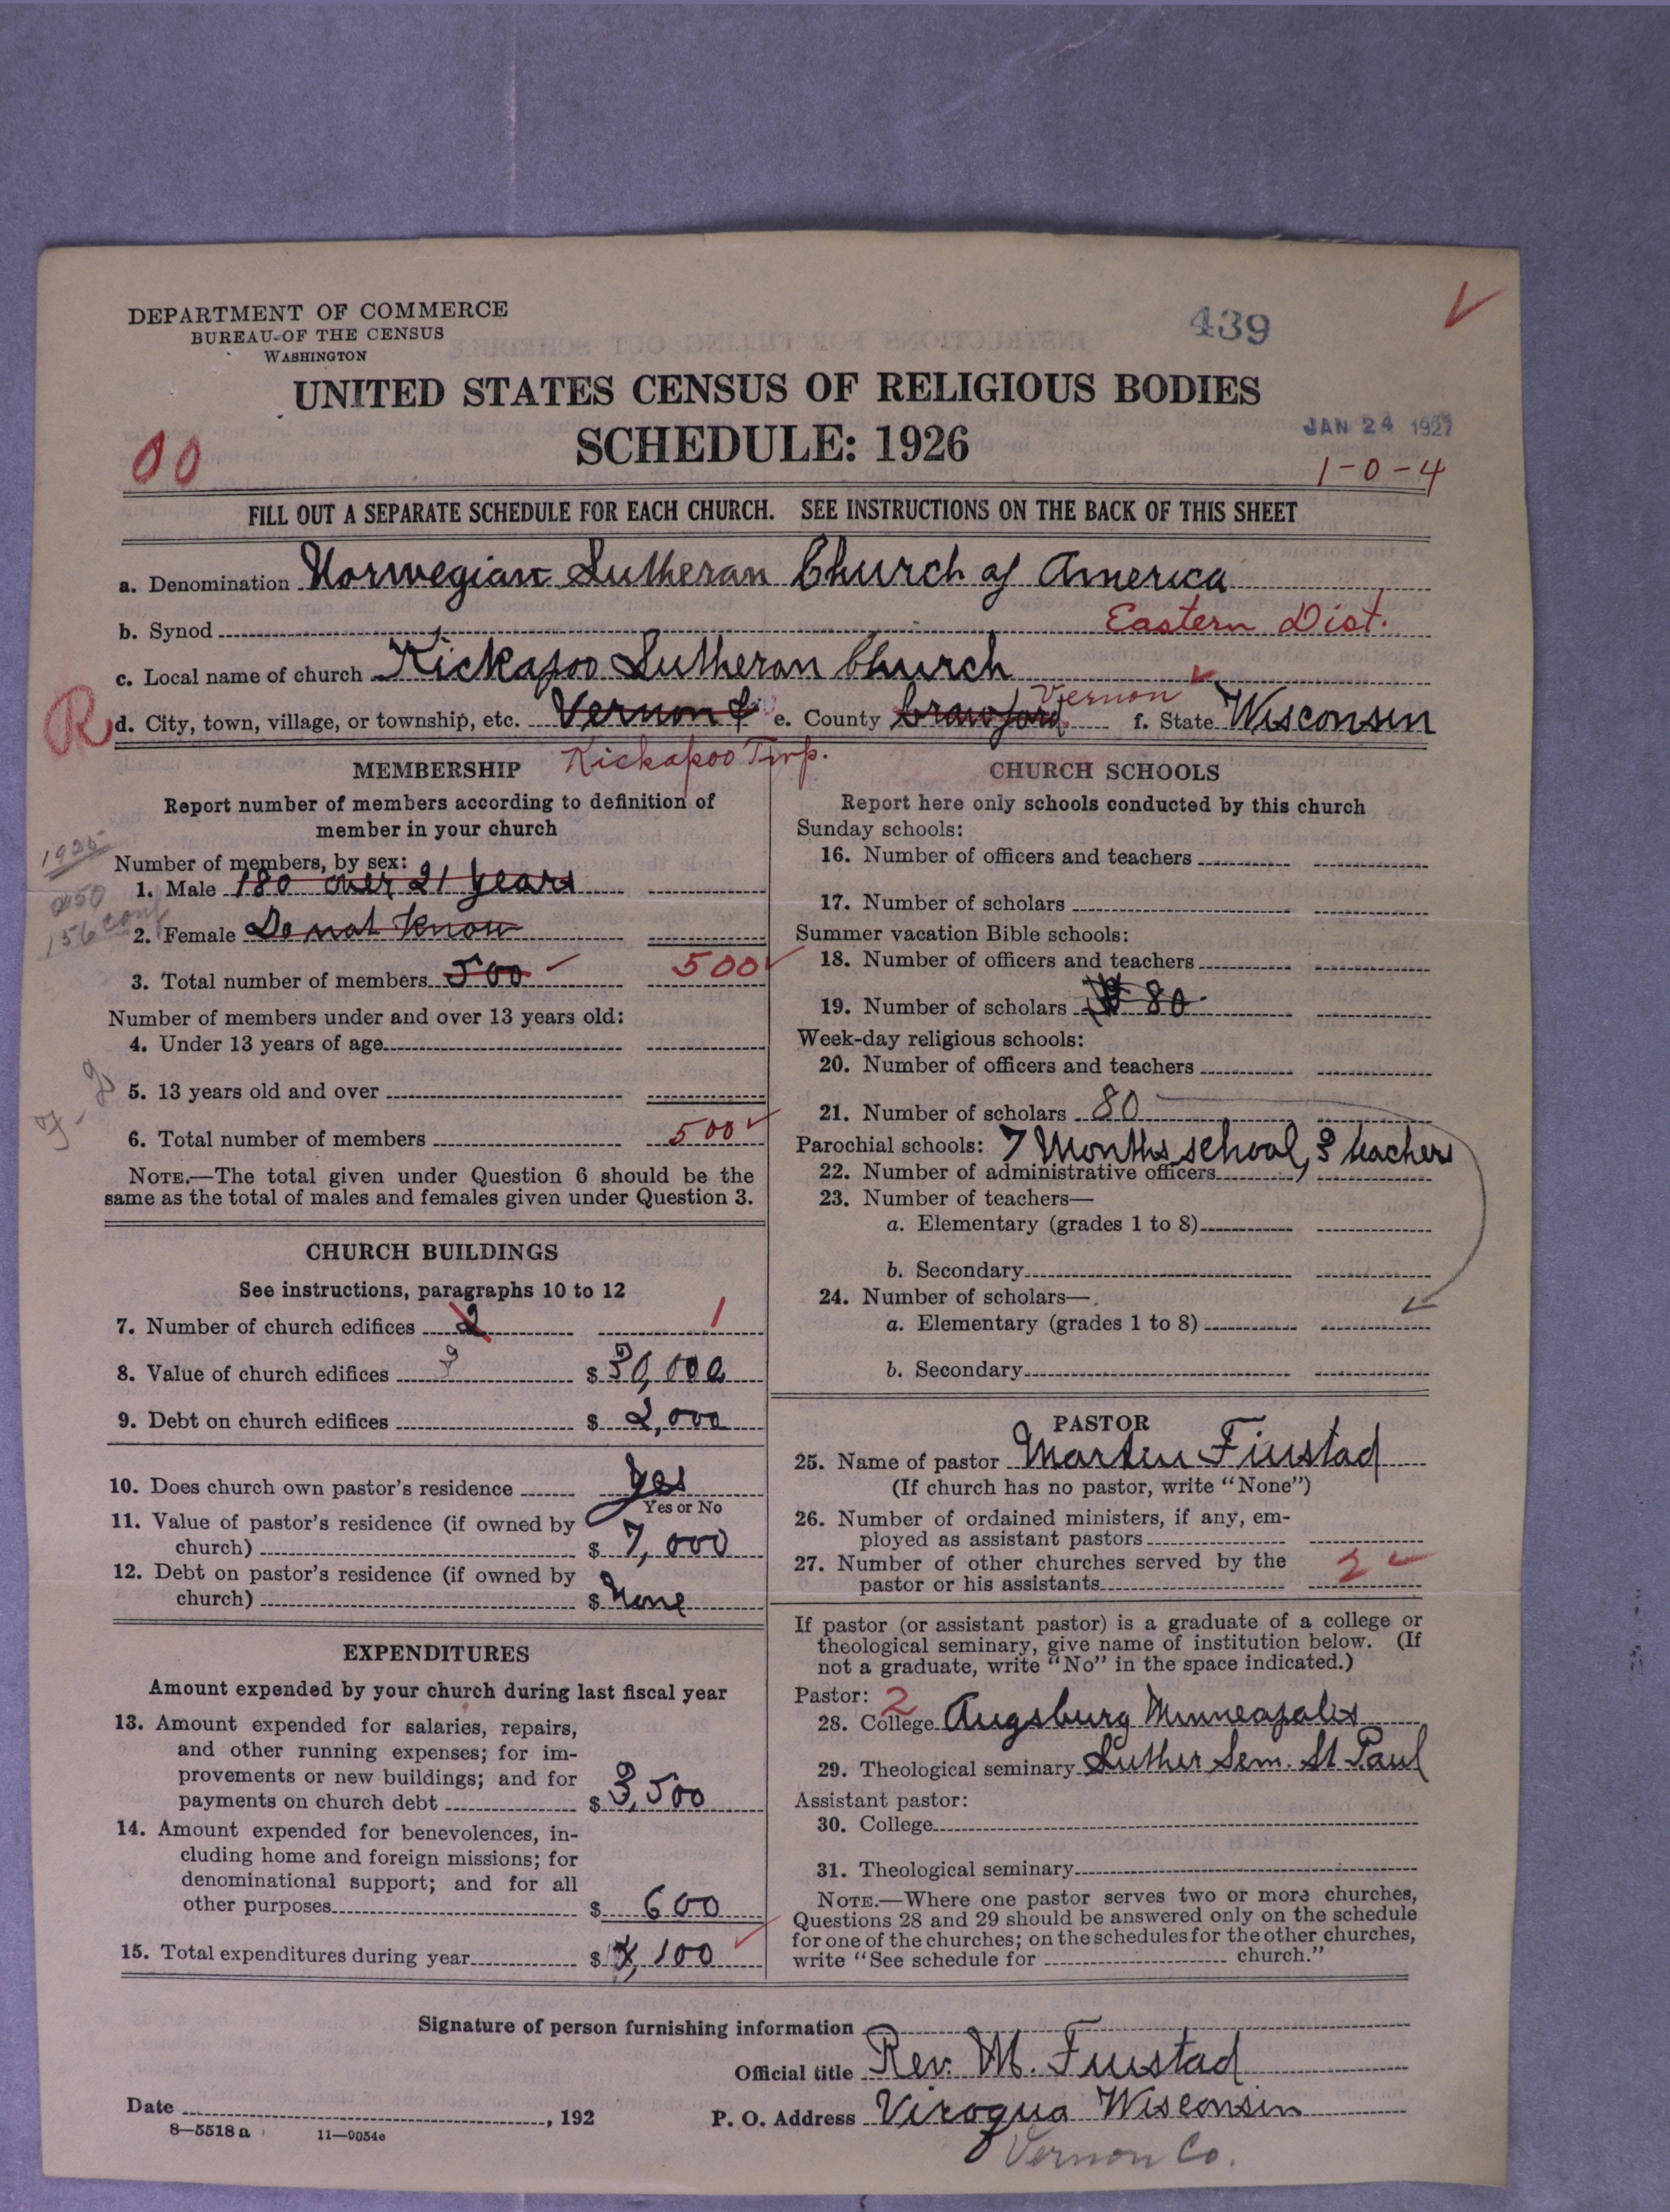 DEPARTMENT OF COMMERCE
BUREAU OF THE CENSUS
WASHINGTON
439
UNITED STATES CENSUS OF RELIGIOUS BODIES
SCHEDULE: 1926
JAN 24 1927
00
1-0-4
FILL OUT A SEPARATE SCHEDULE FOR EACH CHURCH. SEE INSTRUCTIONS ON THE BACK OF THIS SHEET
a. Denomination Norwegian Lutheran Church of America
b. Synod Eastern Dist.
c. Local name of church Kickapoo Lutheran Church
R d. City, town, village, or township, etc. Vernon & e. County Crawford Vernon f. State Wisconsin
Kickapoo Twp.
MEMBERSHIP
Report number of members according to definition of
member in your church
Number of members, by sex:
1. Male 180 over 21 years
2. Female Do not know
156 conf
3. Total number of members 500 500
Number of members under and over 13 years old:
4. Under 13 years of age
5. 13 years old and over
6. Total number of members 500
NOTE.—The total given under Question 6 should be the
same as the total of males and females given under Question 3.
CHURCH BUILDINGS
See instructions, paragraphs 10 to 12
7. Number of church edifices 2 1
8. Value of church edifices $ 30,000
9. Debt on church edifices $ 2,000
10. Does church own pastor's residence Yes
Yes or No
11. Value of pastor's residence (if owned by
church) $ 7,000
12. Debt on pastor's residence (if owned by
church) $ None
EXPENDITURES
Amount expended by your church during last fiscal year
13. Amount expended for salaries, repairs,
and other running expenses; for im-
provements or new buildings; and for
payments on church debt $ 3,500
14. Amount expended for benevolences, in-
cluding home and foreign missions; for
denominational support; and for all
other purposes $ 600
15. Total expenditures during year $ 4,100
CHURCH SCHOOLS
Report here only schools conducted by this church
Sunday schools:
16. Number of officers and teachers
17. Number of scholars
Summer vacation Bible schools:
18. Number of officers and teachers
19. Number of scholars 80
Week-day religious schools:
20. Number of officers and teachers
21. Number of scholars 80
Parochial schools: 7 Months school, 3 teachers
22. Number of administrative officers
23. Number of teachers—
a. Elementary (grades 1 to 8)
b. Secondary
24. Number of scholars—
a. Elementary (grades 1 to 8)
b. Secondary
PASTOR
25. Name of pastor Marten Fiustad
(If church has no pastor, write "None")
26. Number of ordained ministers, if any, em-
ployed as assistant pastors
27. Number of other churches served by the
pastor or his assistants 2
If pastor (or assistant pastor) is a graduate of a college or
theological seminary, give name of institution below. (If
not a graduate, write "No" in the space indicated.)
Pastor: 2
28. College Augsburg Minneapolis
29. Theological seminary Luther Sem. St Paul
Assistant pastor:
30. College
31. Theological seminary
NOTE.—Where one pastor serves two or more churches,
Questions 28 and 29 should be answered only on the schedule
for one of the churches; on the schedules for the other churches,
write "See schedule for church."
Signature of person furnishing information
Official title Rev. M. Fiustad
Date , 192 P. O. Address Viroqua Wisconsin
8—5518 a 11—9054e
Vernon Co.